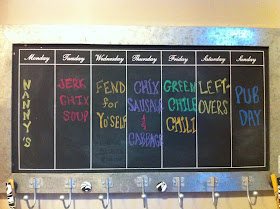 Monday Tuesday Wednesday Thursday Friday Saturday Sunday
NANNY'S
JERK
CHIX
SOUP
FEND
for
YO'SELF
CHIX
SAUSAGE
&
CABBAGE
GREEN
CHILE
CHILI
LEFT-
OVERS
PUB
DAY